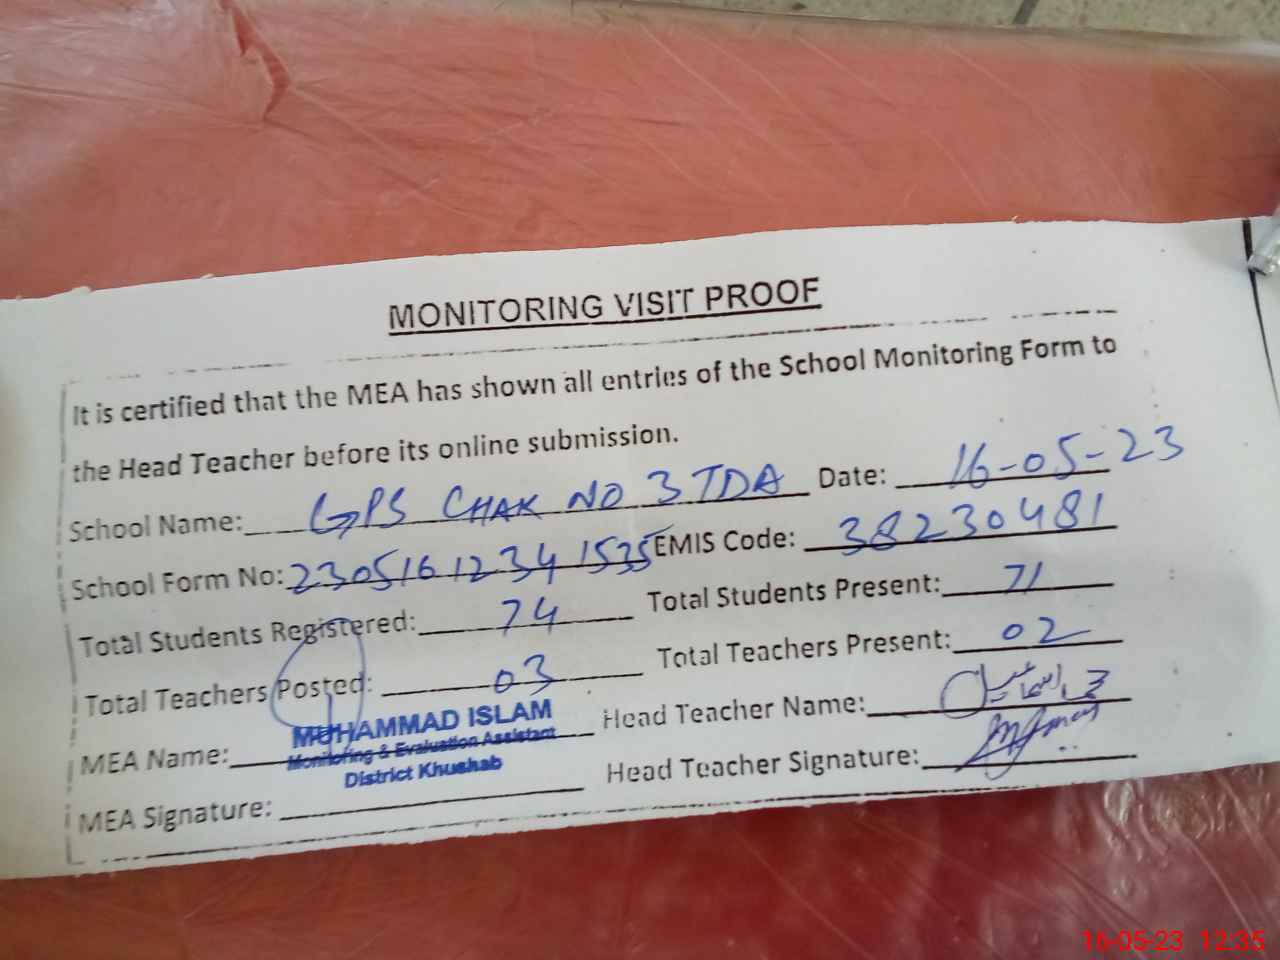 MONITORING VISIT PROOF
It is certified that the MEA has shown all entries of the School Monitoring Form to
the Head Teacher before its online submission.
School Name: GPS CHAK NO 3 TDA Date: 16-05-23
School Form No: 23051612341535 EMIS Code: 38230481
Total Students Registered: 74 Total Students Present: 71
Total Teachers Posted: 03 Total Teachers Present: 02
MEA Name: MUHAMMAD ISLAM Head Teacher Name:
Monitoring & Evaluation Assistant
District Khushab
MEA Signature: Head Teacher Signature:
16-05-23 12:35